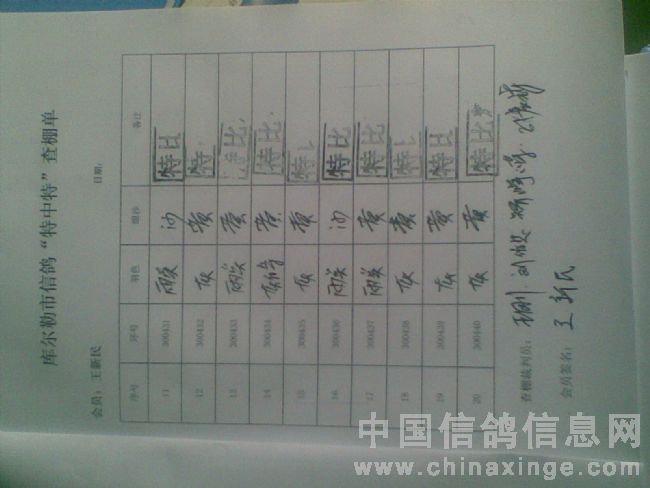 库尔勒市信鸽“特中特”查棚单
会员：王新民 日期：
序号 环号 羽色 眼沙 备注
11 300431 雨点 沙 特比
12 300432 灰 黄 特比
13 300433 雨点 黄 特比
14 300434 黄 特比
15 300435 灰 黄 特
16 300436 雨点 沙 特比
17 300437 雨点 黄 特比
18 300438 灰 黄 特比
19 300439 灰 黄 特比
20 300440 灰 黄 特比
查棚裁判员：
会员签名：王新民
中国信鸽信息网
www.chinaxinge.com